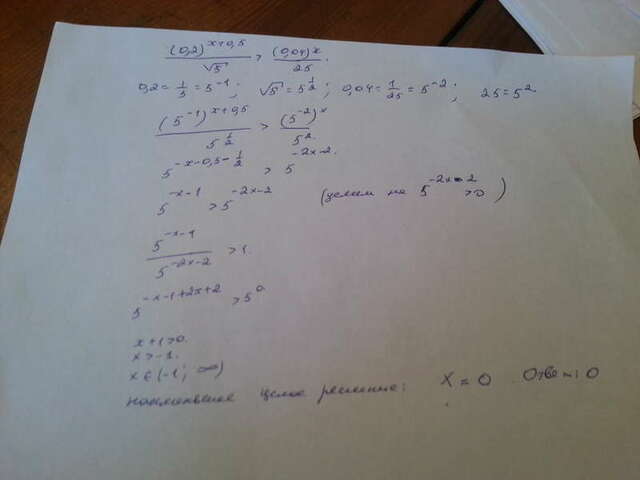 (0,2)^{x+0,5} / √5 > (0,04)^x / 25.
0,2 = 1/5 = 5^{-1}; √5 = 5^{1/2}; 0,04 = 1/25 = 5^{-2}; 25 = 5^2.
(5^{-1})^{x+0,5} / 5^{1/2} > (5^{-2})^x / 5^2.
5^{-x-0,5-1/2} > 5^{-2x-2}.
5^{-x-1} > 5^{-2x-2} (делим на 5^{-2x-2} > 0)
5^{-x-1} / 5^{-2x-2} > 1.
5^{-x-1+2x+2} > 5^0
x+1>0.
x>-1.
x∈(-1; ∞)
наименьшее целое решение: x = 0. Ответ: 0